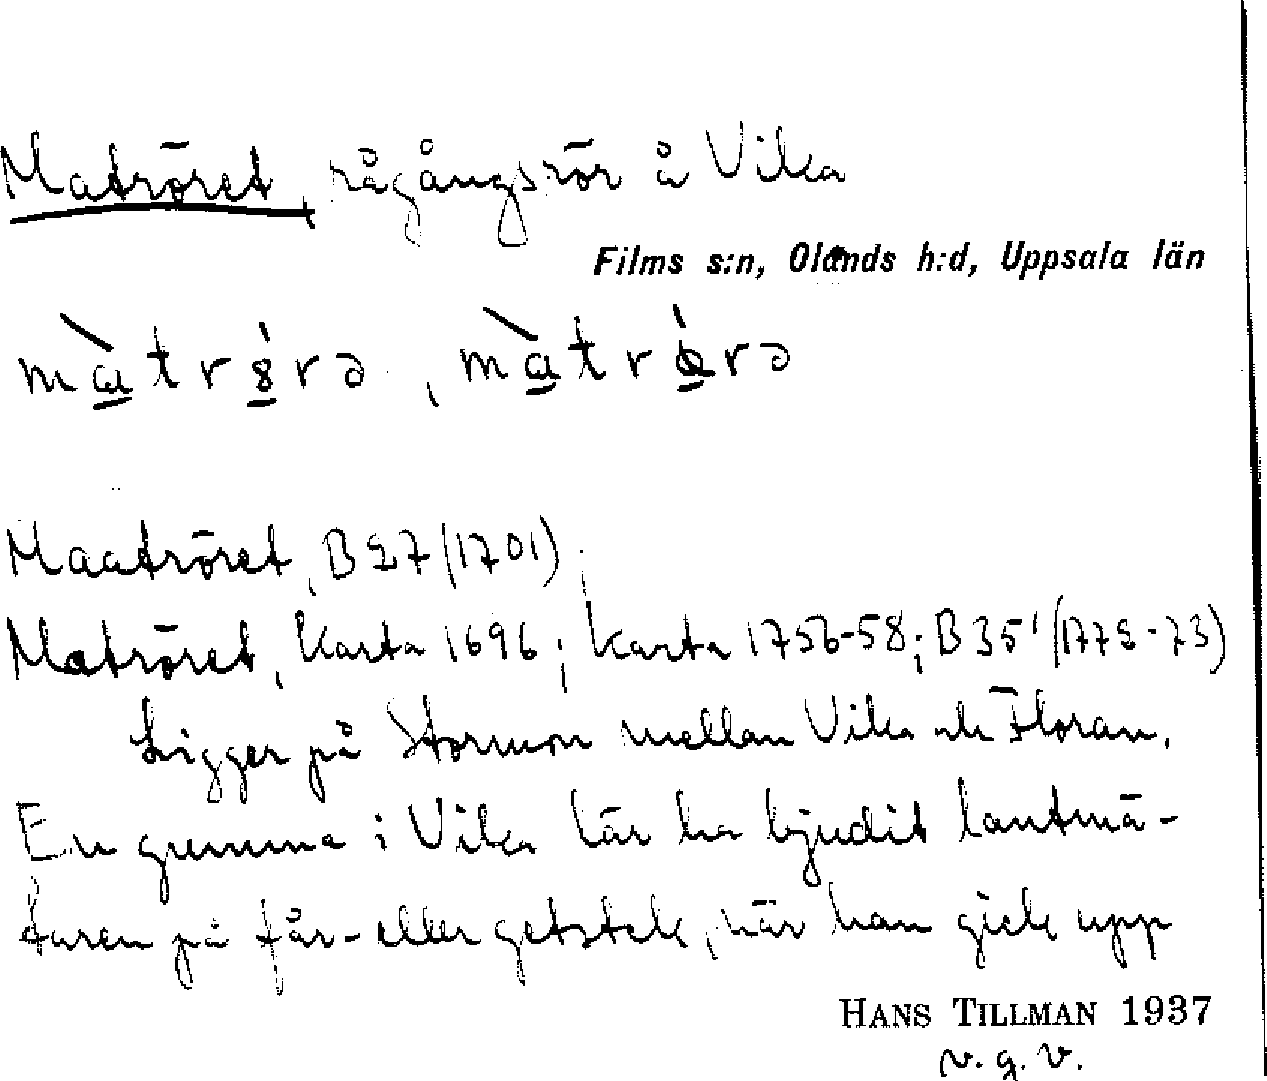 Matröret, rågångsrör å Vika
Films s:n, Olands h:d, Uppsala län
Maatröret, B 27 (1701);
Matröret, Karta 1696; Karta 1756-58; B 35 (1772-73)
Ligger på Stormon mellan Vika och Floran.
En gumma i Vika lär ha bjudit lantmä-
taren på får- eller getstek, när han gick upp
HANS TILLMAN 1937
v. g. v.